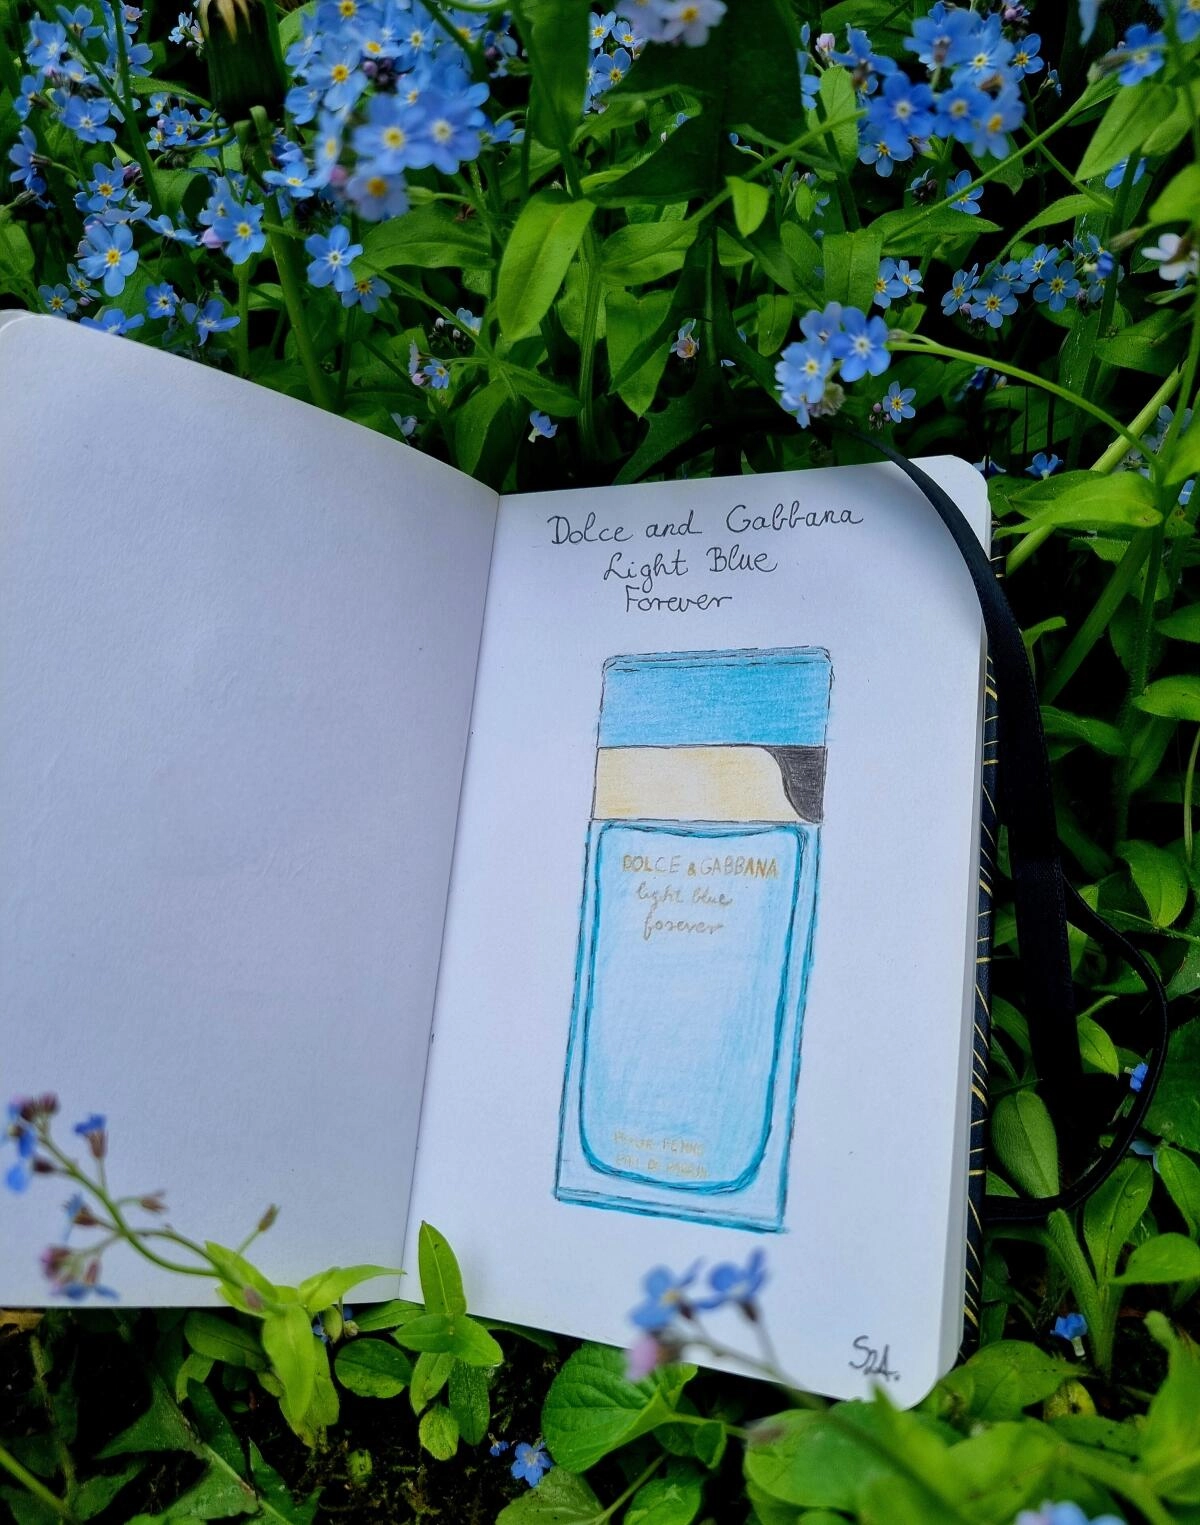 Dolce and Gabbana
Light Blue
Forever
DOLCE & GABBANA
light blue
forever
POUR FEMME
EAU DE PARFUM
SZA.